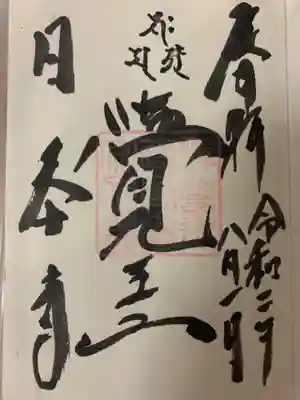 奉拝 令和二年
八月一日
覺王
日泰寺